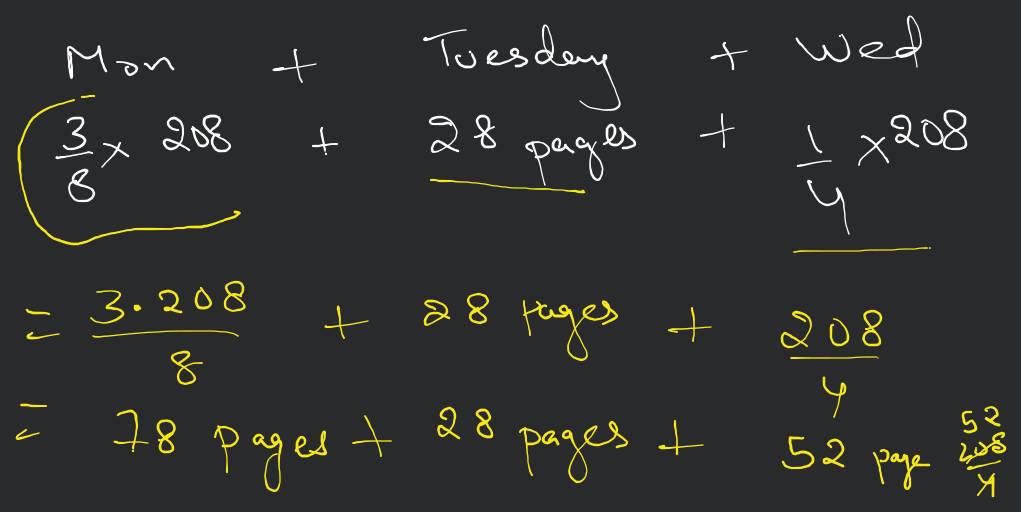 Mon + Tuesday + Wed
3/8 × 208 + 28 pages + 1/4 × 208
= 3·208/8 + 28 pages + 208/4
= 78 pages + 28 pages + 52 page 52 208/4